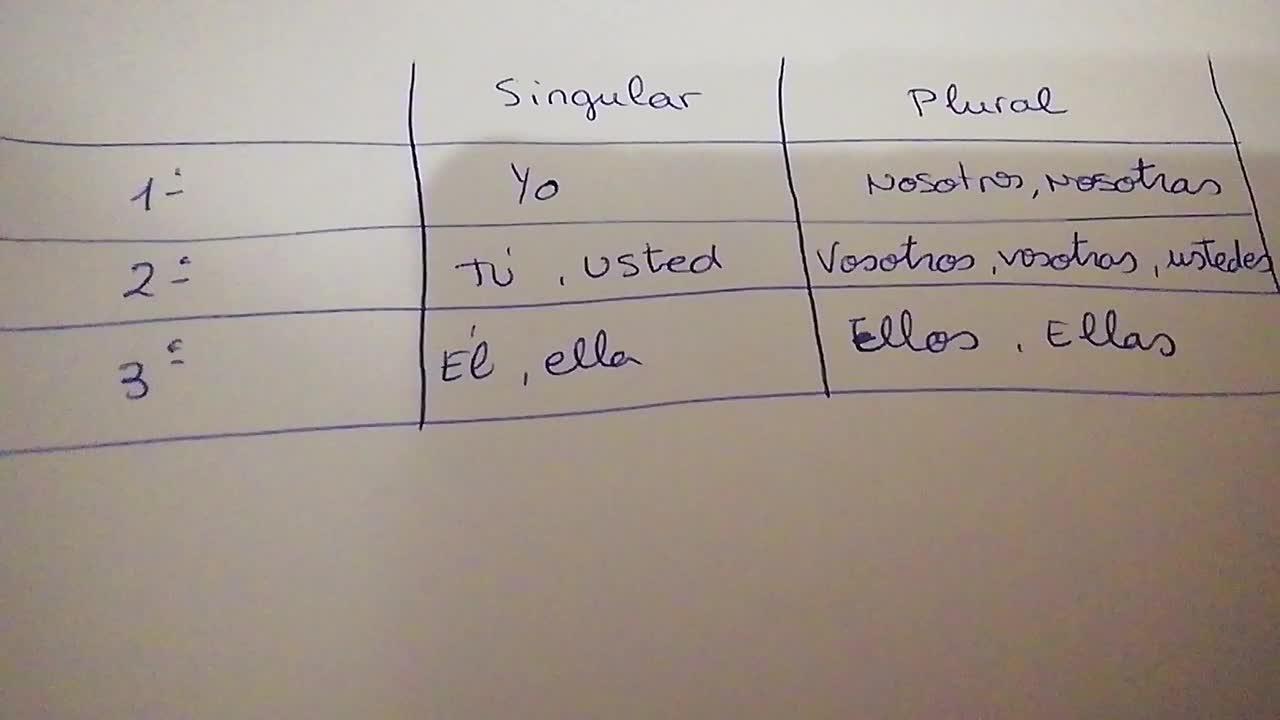 Singular Plural
1ª Yo Nosotros, Nosotras
2ª Tú, usted Vosotros, vosotras, ustedes
3ª Él, ella Ellos, Ellas